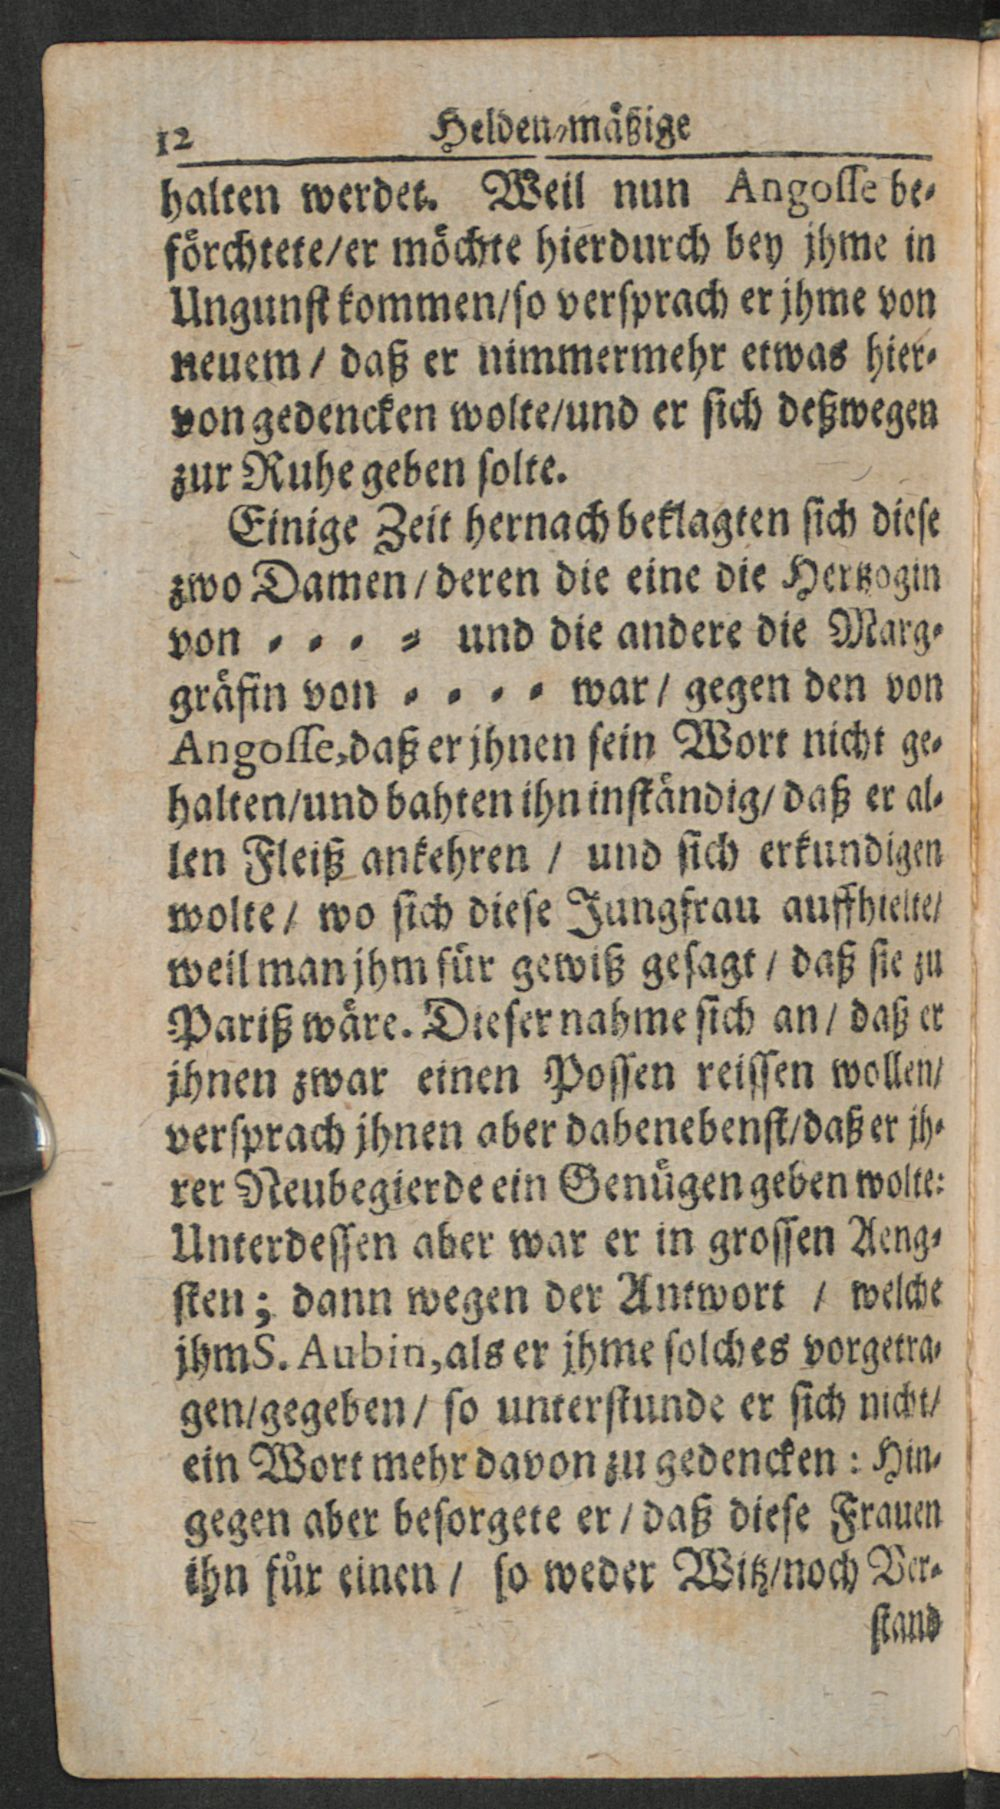 12 Helden-mäßige
halten werdet. Weil nun Angosse be-
förchtete/er möchte hierdurch bey jhme in
Ungunst kommen/so versprach er jhme von
neuem / daß er nimmermehr etwas hier-
von gedencken wolte/und er sich deßwegen
zur Ruhe geben solte.
Einige Zeit hernach beklagten sich diese
zwo Damen/deren die eine die Hertzogin
von - - - - und die andere die Marg-
gräfin von - - - - war/ gegen den von
Angosse, daß er jhnen sein Wort nicht ge-
halten/und bahten ihn inständig/ daß er al-
len Fleiß ankehren / und sich erkundigen
wolte/ wo sich diese Jungfrau auffhielte/
weil man jhm für gewiß gesagt / daß sie zu
Pariß wäre. Dieser nahme sich an/ daß er
jhnen zwar einen Possen reissen wollen/
versprach jhnen aber dabenebenst/daß er jh-
rer Neubegierde ein Genügen geben wolte:
Unterdessen aber war er in grossen Aeng-
sten; dann wegen der Antwort / welche
jhm S. Aubin, als er jhme solches vorgetra-
gen/gegeben/ so unterstunde er sich nicht/
ein Wort mehr davon zu gedencken: Hin-
gegen aber besorgete er/ daß diese Frauen
ihn für einen / so weder Witz/noch Ver-
stand